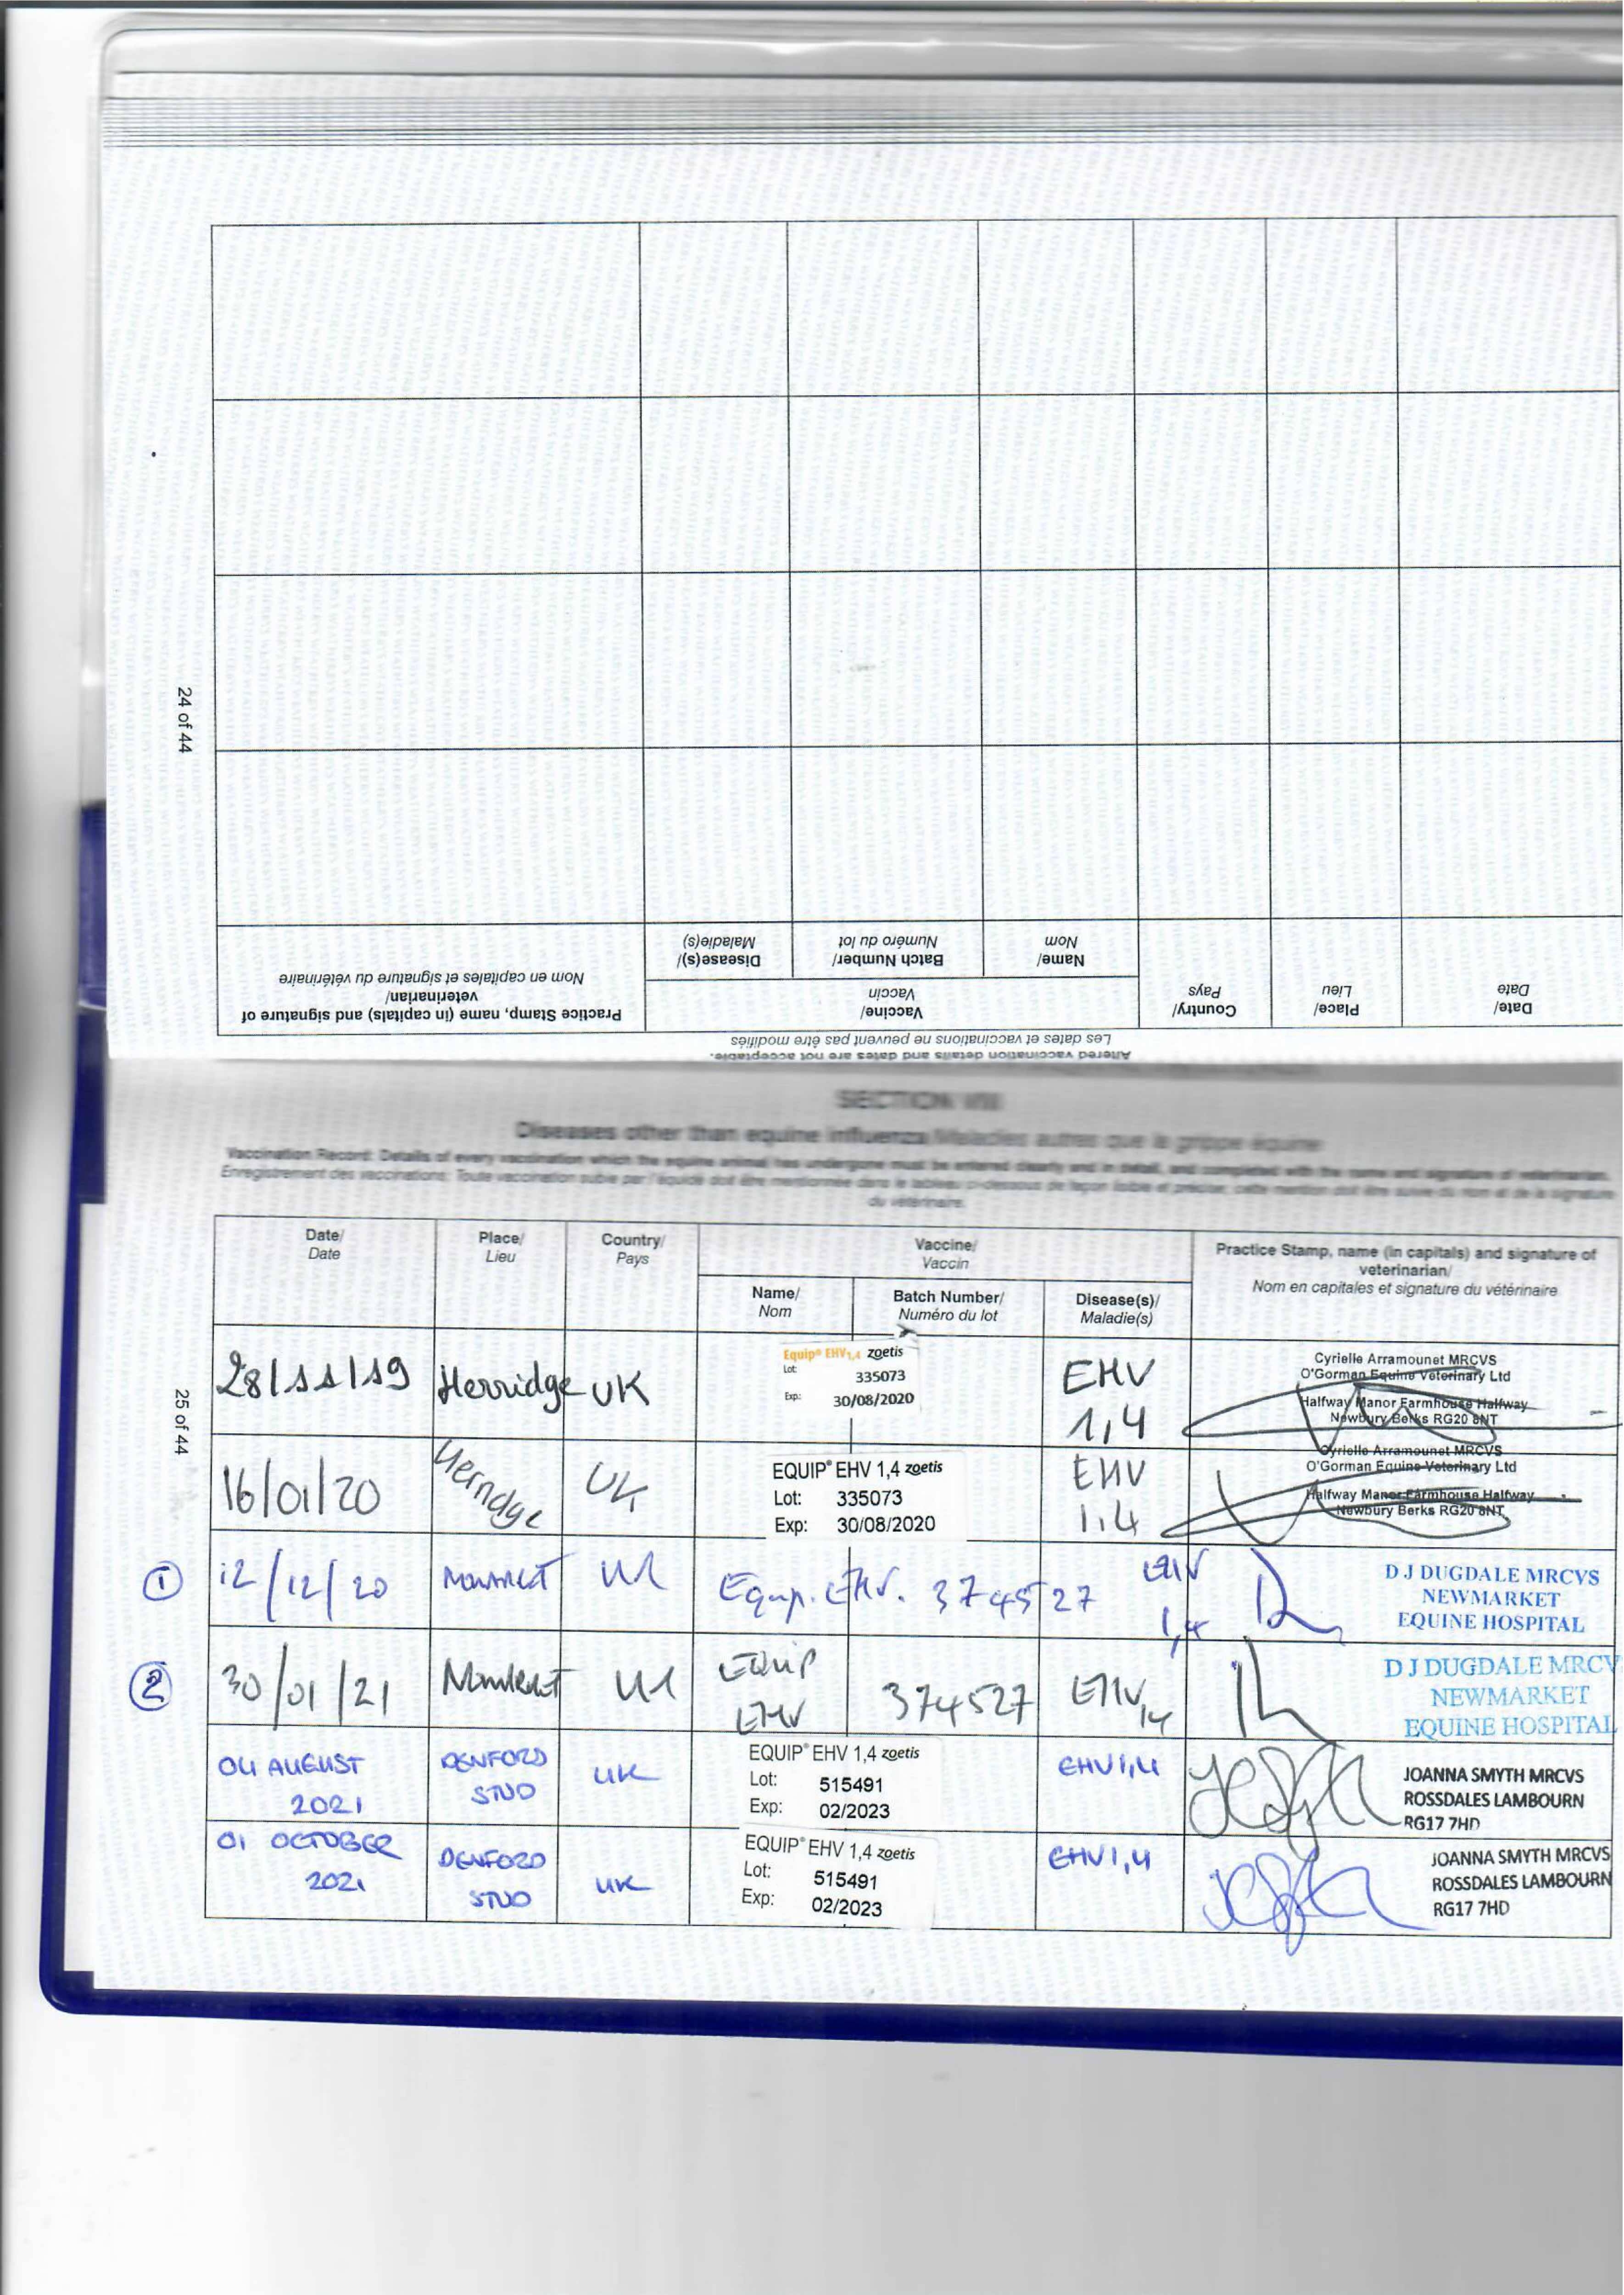 24 of 44
Practice Stamp, name (in capitals) and signature of
veterinarian/
Nom en capitales et signature du vétérinaire
Disease(s)/
Maladie(s)
Batch Number/
Numéro du lot
Name/
Nom
Vaccine/
Vaccin
Country/
Pays
Place/
Lieu
Date/
Date
Les dates et vaccinations ne peuvent pas être modifiés
Altered vaccination details and dates are not acceptable.
SECTION VIII
Diseases other than equine influenza/Maladies autres que la grippe équine
Vaccination Record: Details of every vaccination which the equine animal has undergone must be entered clearly and in detail, and completed with the name and signature of veterinarian.
Enregistrement des vaccinations: Toute vaccination subie par l'équidé doit être mentionnée dans le tableau ci-dessous de façon lisible et précise; cette mention doit être suivie du nom et de la signature
du vétérinaire.
25 of 44
Date/
Date
Place/
Lieu
Country/
Pays
Vaccine/
Vaccin
Name/
Nom
Batch Number/
Numéro du lot
Disease(s)/
Maladie(s)
Practice Stamp, name (in capitals) and signature of
veterinarian/
Nom en capitales et signature du vétérinaire
28/11/19 Herridge UK
Equip® EHV1,4 zoetis
Lot: 335073
Exp: 30/08/2020
EHV
1,4
Cyrielle Arramounet MRCVS
O'Gorman Equine Veterinary Ltd
Halfway Manor Farmhouse Halfway
Newbury Berks RG20 8NT
16/01/20 Herridge UK
EQUIP® EHV 1,4 zoetis
Lot: 335073
Exp: 30/08/2020
EHV
1,4
Cyrielle Arramounet MRCVS
O'Gorman Equine Veterinary Ltd
Halfway Manor Farmhouse Halfway
Newbury Berks RG20 8NT
① 12/12/20 UK Equip. EHV. 374527 EHV
1,4
D J DUGDALE MRCVS
NEWMARKET
EQUINE HOSPITAL
② 30/01/21 UK EQUIP
EHV 374527 EHV 1,4
D J DUGDALE MRCV
NEWMARKET
EQUINE HOSPITAL
04 AUGUST
2021
DENFORD
STUD
UK
EQUIP® EHV 1,4 zoetis
Lot: 515491
Exp: 02/2023
EHV1,4
JOANNA SMYTH MRCVS
ROSSDALES LAMBOURN
RG17 7HD
01 OCTOBER
2021
DENFORD
STUD
UK
EQUIP® EHV 1,4 zoetis
Lot: 515491
Exp: 02/2023
EHV1,4
JOANNA SMYTH MRCVS
ROSSDALES LAMBOURN
RG17 7HD